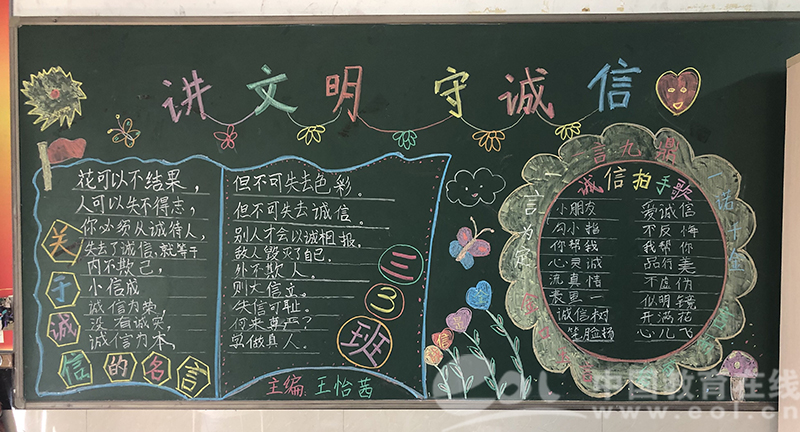 讲文明 守诚信
花可以不结果，
人可以失不得志，
你必须从诚待人，
失去了诚信，就等于
内不欺己，
小信成
诚信为荣，
没有诚实，
诚信为本，
但不可失去色彩。
但不可失去诚信。
别人才会以诚相报。
敌人毁灭了自己。
外不欺人。
则大信立。
失信可耻。
何来尊严？
实做真人。
关于诚信的名言
三3班
主编:王怡茜
一言为定
言九鼎
一诺千金
诚信拍手歌
小朋友 爱诚信
勾小指 不反悔
你帮我 我帮你
心灵诚 品行美
流真情 不虚伪
表里一 似明镜
诚信树 开满花
笑脸扬 心儿飞
eol 中国教育在线
www.eol.cn